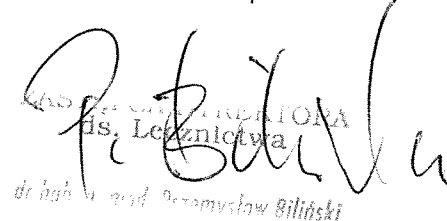 ZASTĘPCA DYREKTORA
ds. Lecznictwa
dr hab. n. med. Przemysław Biliński